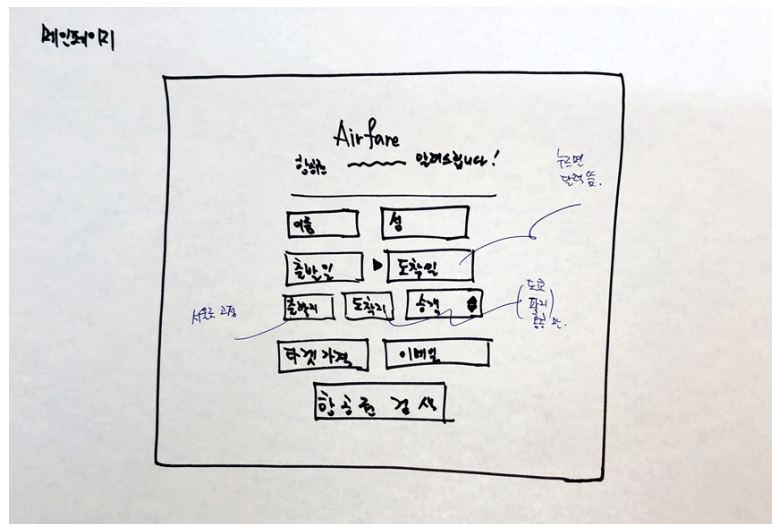 메인페이지
Airfare
항상 알려드립니다!
누르면
달력 뜸.
이름 성
출발일 ▶ 도착일
출발지 도착지 승객
서울로 고정
도쿄
파리
홍콩
타겟가격 이메일
항공권 검색